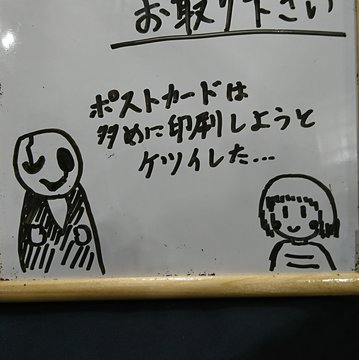 お取り下さい
ポストカードは
多めに印刷しようと
ケツイした...